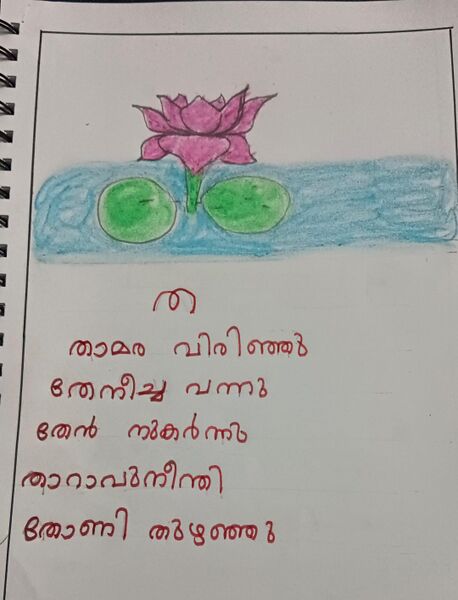 ത
താമര വിരിഞ്ഞു
തേനീച്ച വന്നു
തേൻ നുകർന്നു
താറാവുനീന്തി
തോണി തുഴഞ്ഞു